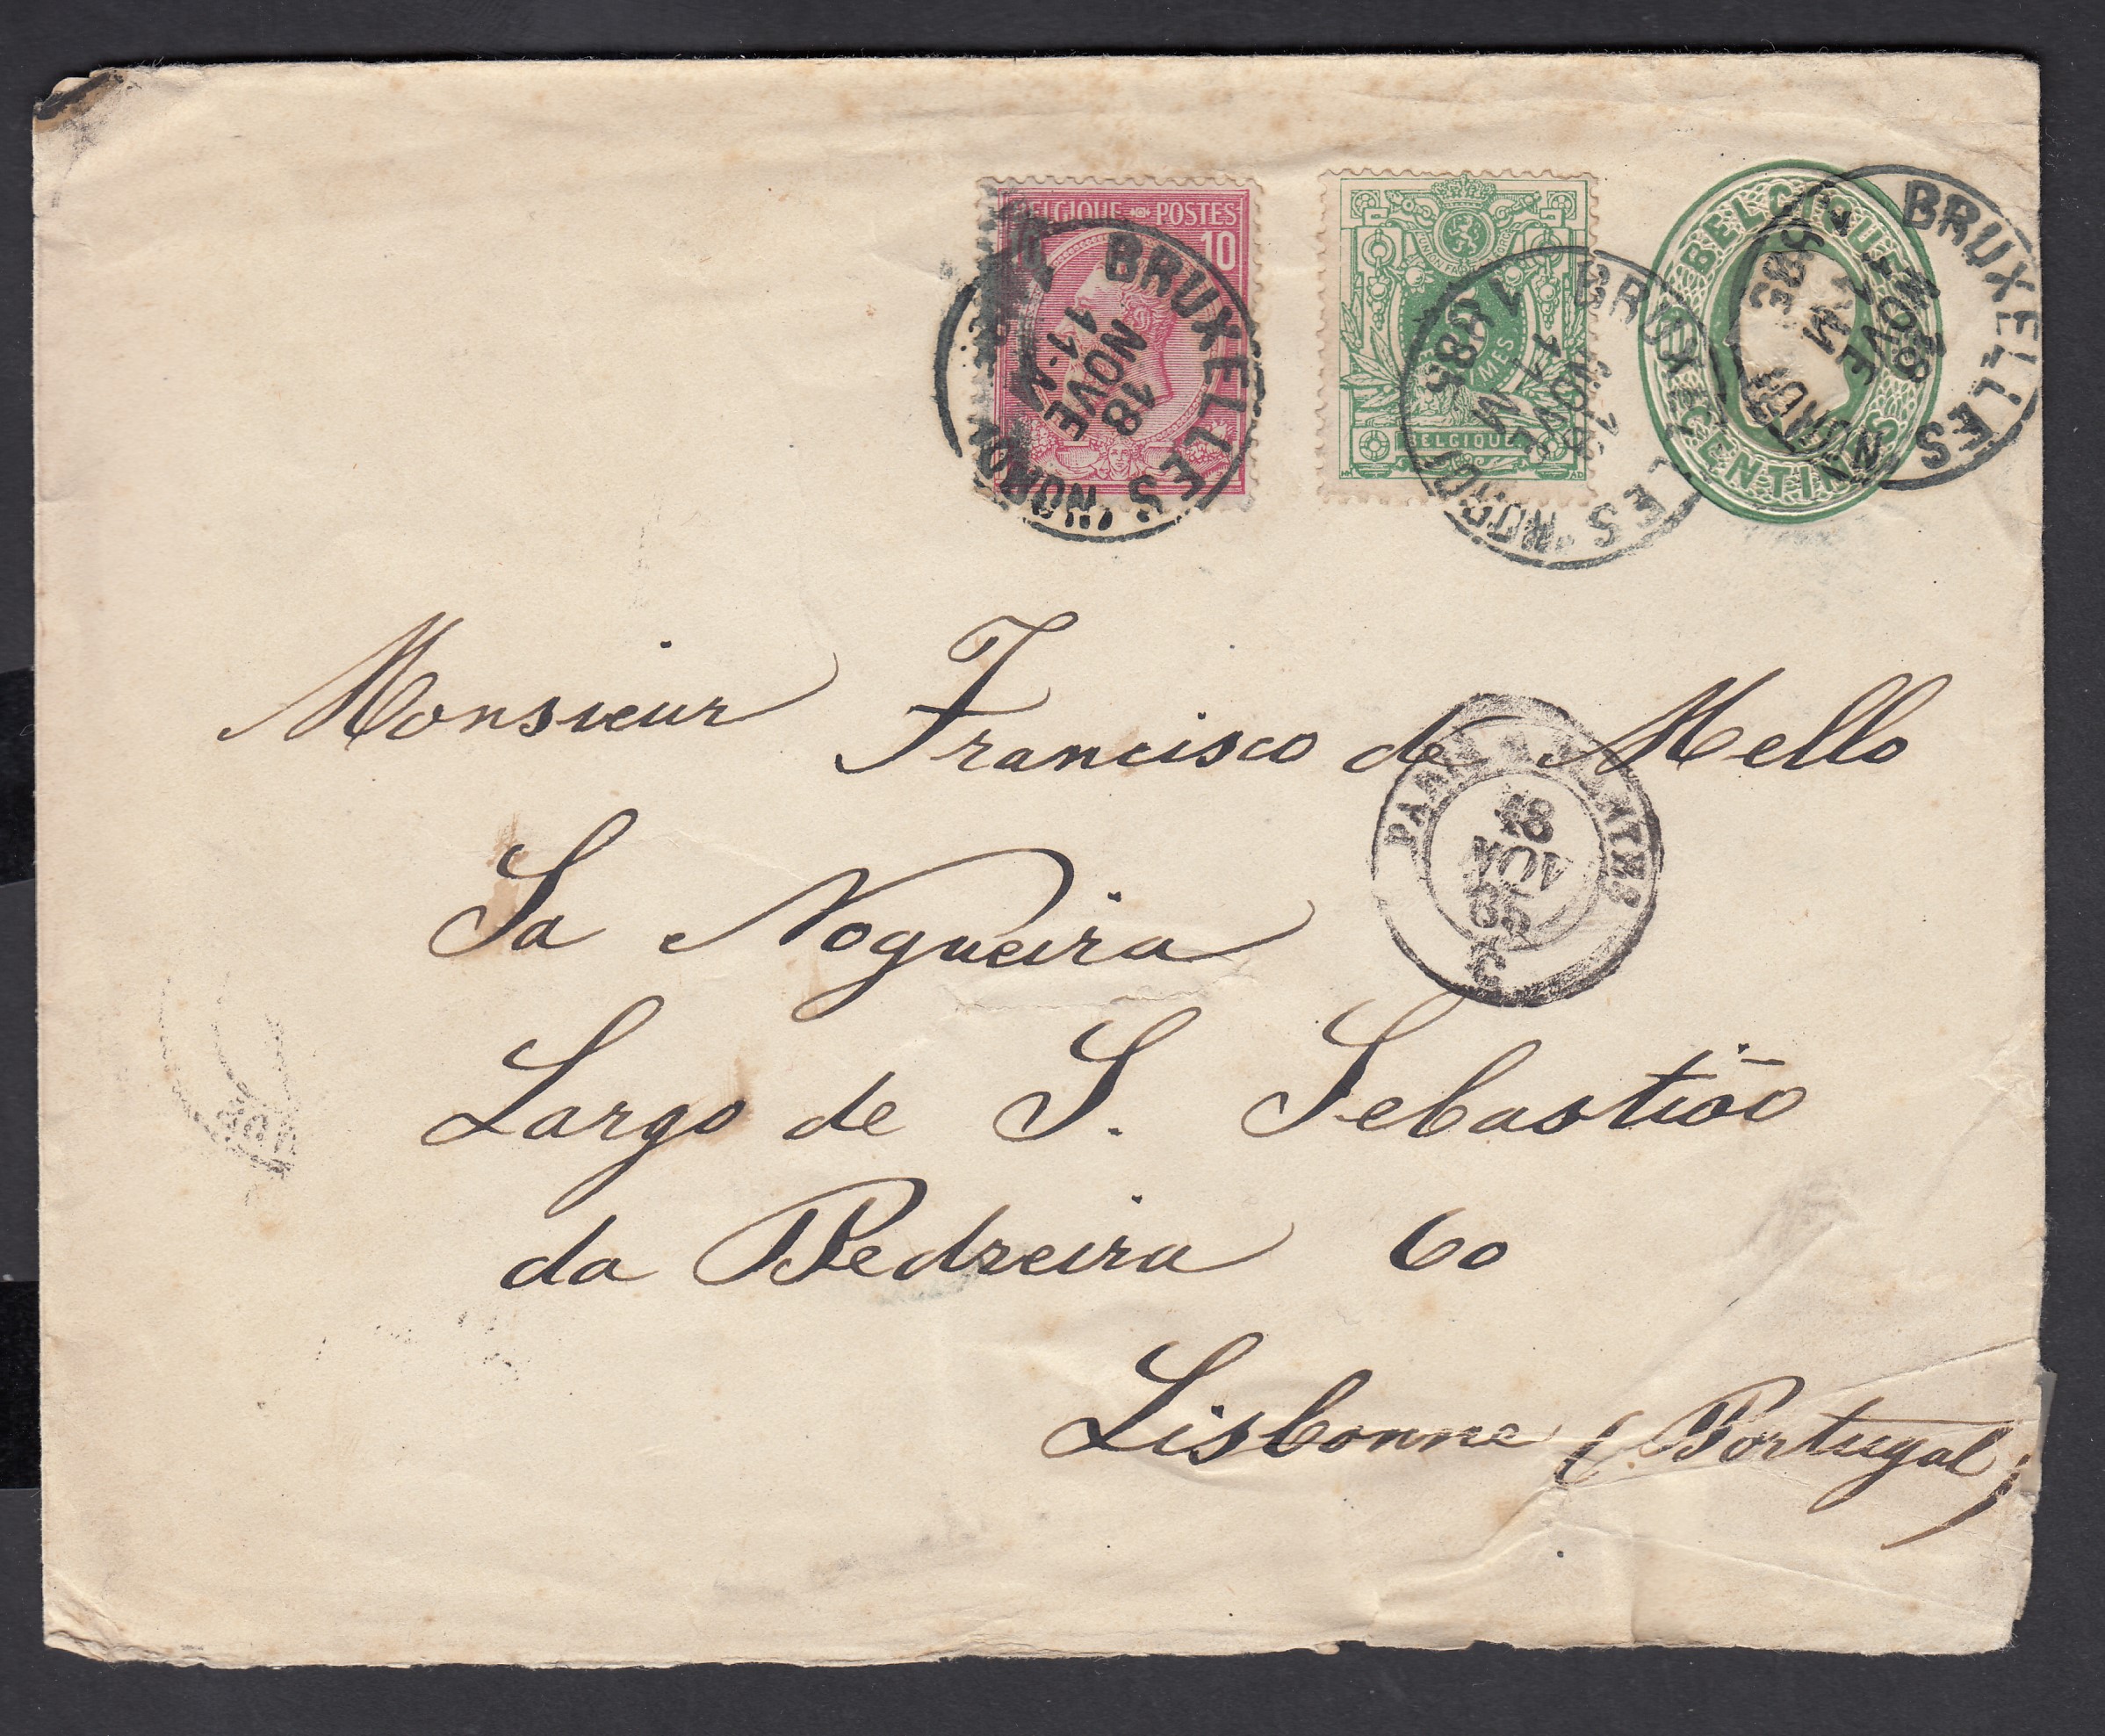 BELGIQUE POSTES
10
BELGIQUE
BELGIQUE
CENTIMES
BRUXELLES (NORD)
18
NOVE
11-M
BRUXELLES (NORD)
18
NOVE
11 M
1885
BRUXELLES (NORD)
18
NOVE
Monsieur Francisco de Mello
Sa Nogueira
Largo de S. Sebastião
da Pedreira 60
Lisbonne (Portugal)
PARIS
18
NOV
85